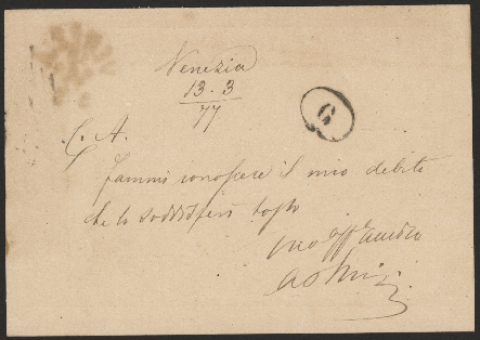 Venezia
13 - 3
77
G
C. A.
fammi conoscere il mio debito
che lo soddisferò tosto
tuo aff.º amico